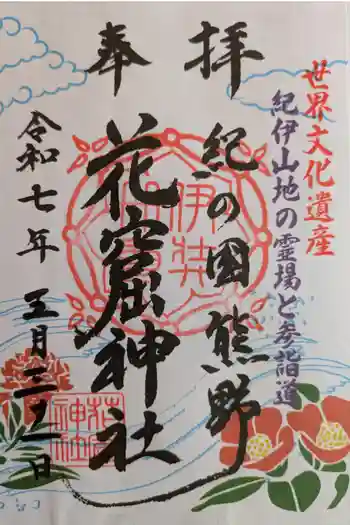 世界文化遺産
紀伊山地の霊場と参詣道
奉拝
紀の国熊野
花窟神社
令和七年五月三十一日
花窟
神社